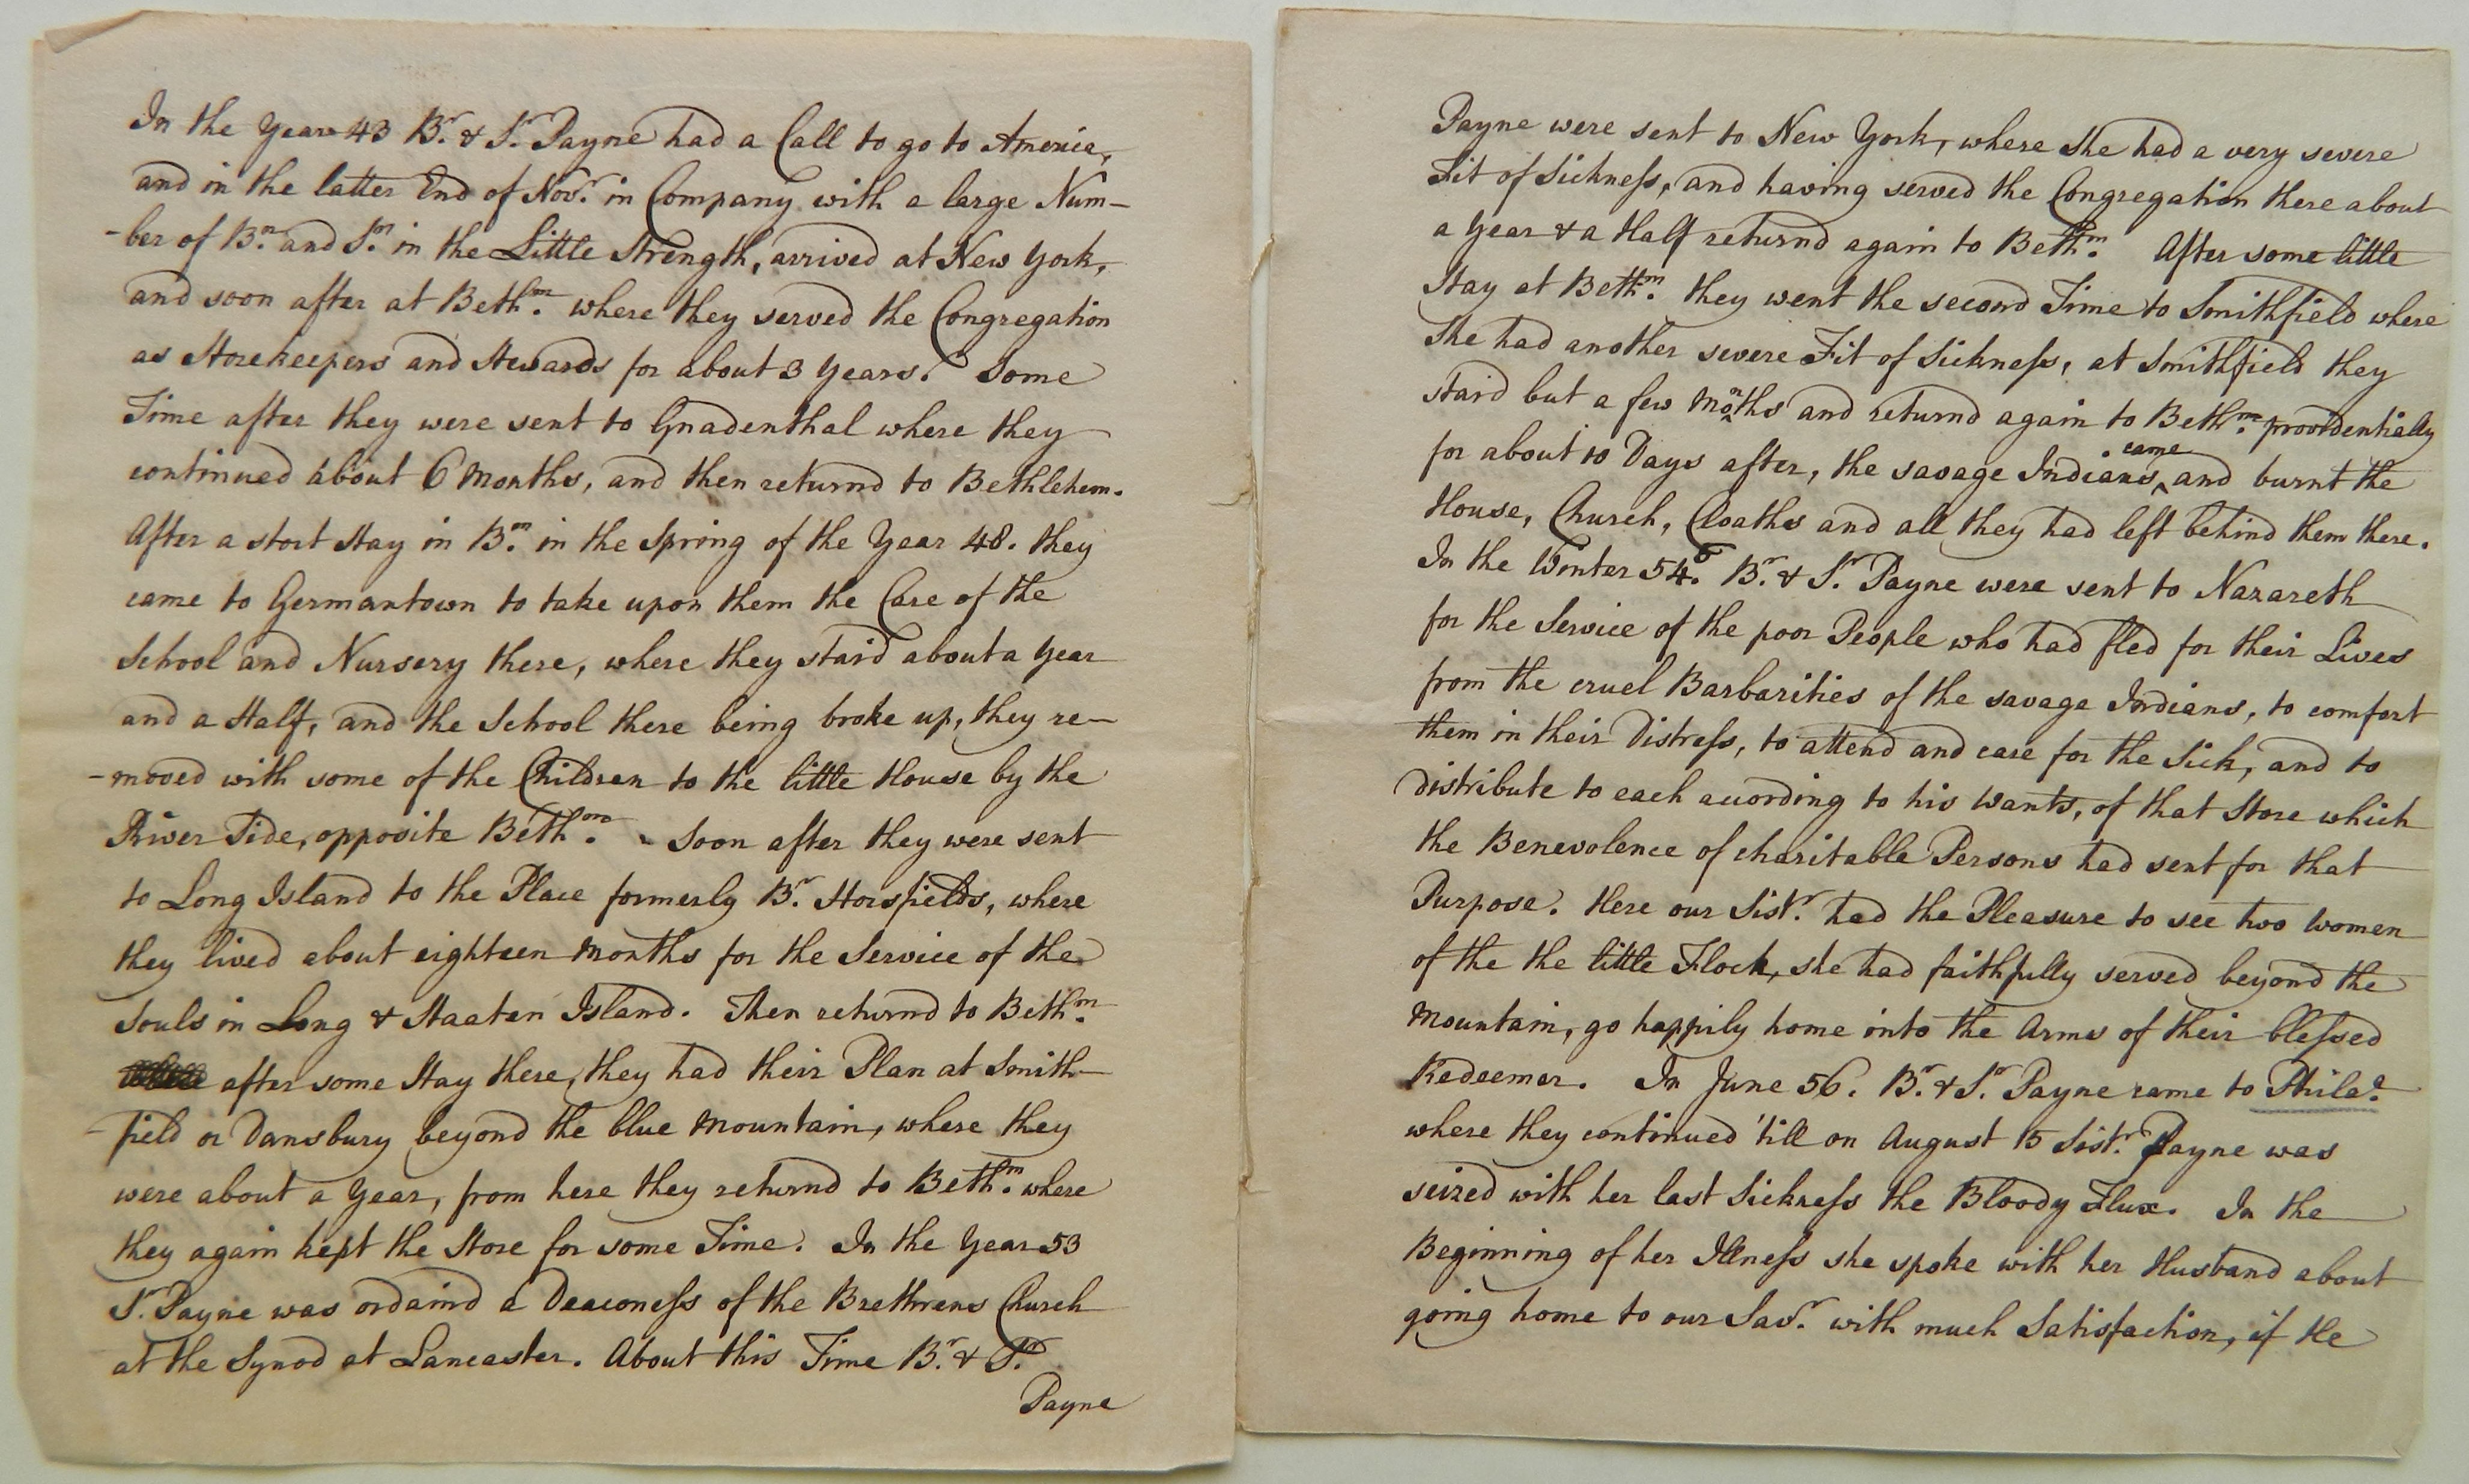 In the Year 43 Br. & Sr. Payne had a Call to go to America,
and in the latter End of Novr. in Company with a large Num-
-ber of Bn. and Sn. in the Little Strength, arrived at New York,
and soon after at Bethm. where they served the Congregation
as Storekeepers and Stewards for about 3 Years. Some
Time after they were sent to Gnadenthal where they
continued about 6 Months, and then returnd to Bethlehem.
After a short Stay in Bm. in the Spring of the Year 48. they
came to Germantown to take upon them the Care of the
School and Nursery there, where they staid about a Year
and a Half, and the School there being broke up, they re-
-moved with some of the Children to the little House by the
River Side, opposite Bethm. Soon after they were sent
to Long Island to the Place formerly Br. Horsfields, where
they lived about eighteen Months for the Service of the
Souls in Long & Staaten Island. Then returnd to Bethm.
after some Stay there, they had their Plan at Smith-
-field or Dansbury beyond the blue Mountain, where they
were about a Year, from here they returnd to Bethm. where
they again kept the Store for some Time. In the Year 53
Sr. Payne was ordaind a Deaconess of the Brethrens Church
at the Synod at Lancaster. About this Time Br. & Sr.
Payne
Payne were sent to New York, where she had a very severe
Fit of Sickness, and having served the Congregation there about
a Year & a Half returnd again to Bethm. After some little
Stay at Bethm. they went the second Time to Smithfield where
she had another severe Fit of Sickness, at Smithfield they
staid but a few Months and returnd again to Bethm. providentially
for about 10 Days after, the savage Indians came and burnt the
House, Church, Cloaths and all they had left behind them there.
In the Winter 545. Br. & Sr. Payne were sent to Nazareth
for the Service of the poor People who had fled for their Lives
from the cruel Barbarities of the savage Indians, to comfort
them in their Distress, to attend and care for the Sick, and to
distribute to each acording to his Wants, of that Store which
the Benevolence of charitable Persons had sent for that
Purpose. Here our Sistr. had the Pleasure to see two Women
of the the little Flock, she had faithfully served beyond the
Mountain, go happily home into the Arms of their blessed
Redeemer. In June 56. Br. & Sr. Payne came to Phila.
where they continued 'till on August 15 Sistr. Payne was
seized with her last Sickness the Bloody Flux. In the
Beginning of her Illness she spoke with her Husband about
going home to our Savr. with much Satisfaction, if He